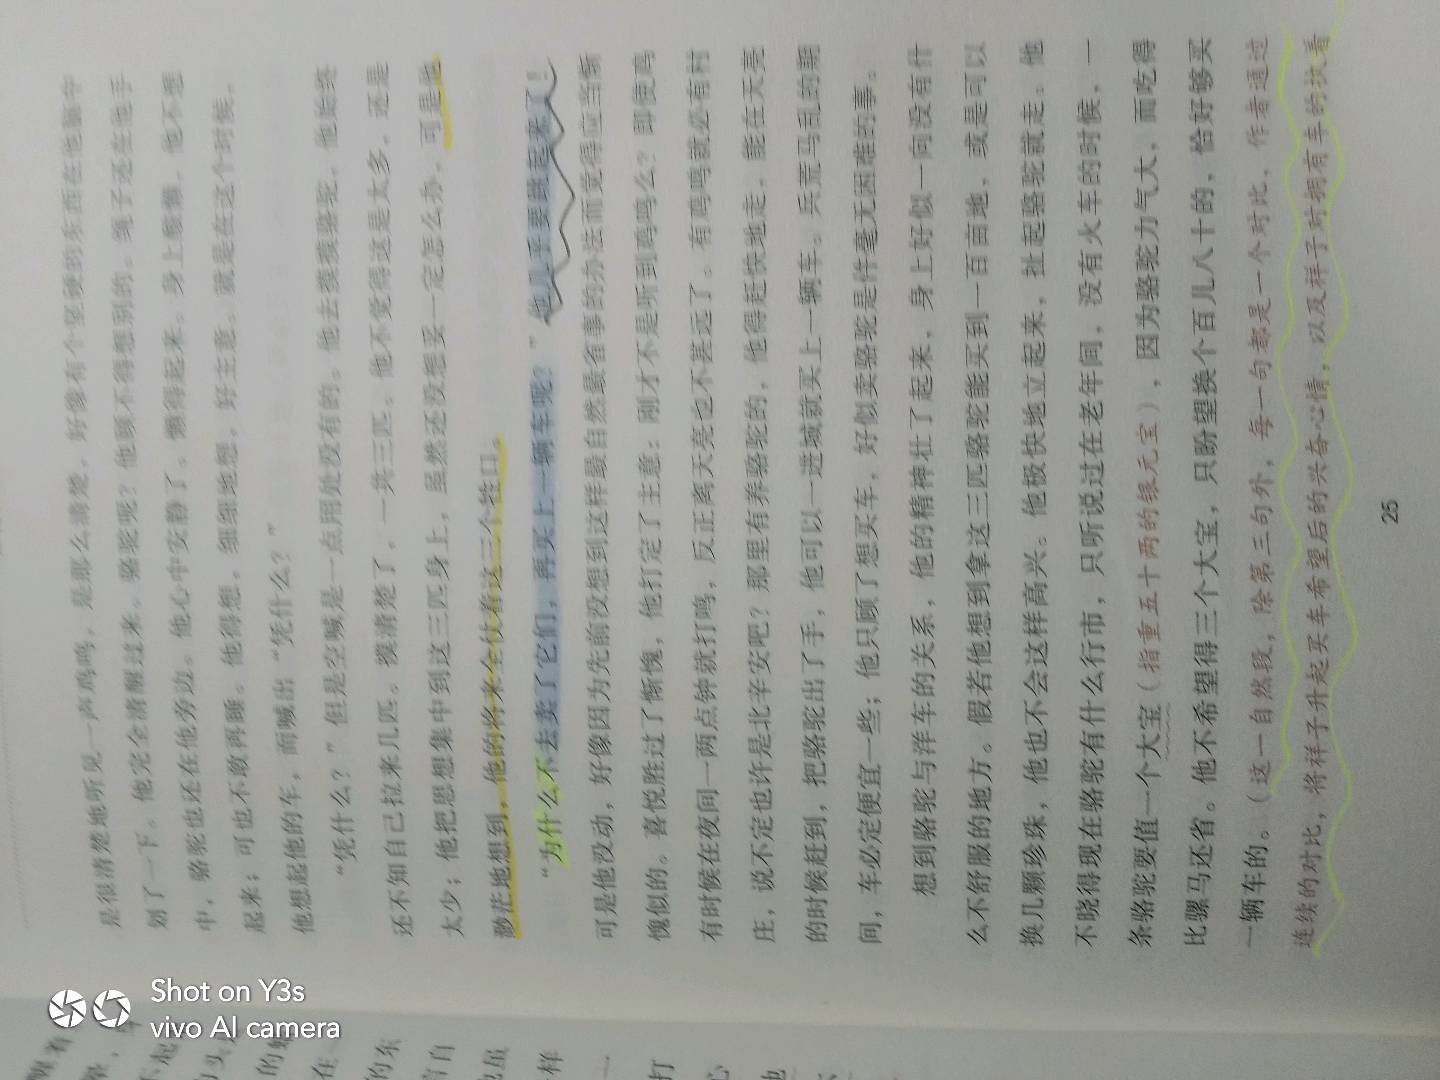 是很清楚地听见一声鸡鸣，是那么清楚，好像有个坚硬的东西在他脑中
划了一下。他完全清醒过来。骆驼呢？他顾不得想别的。绳子还在他手
中，骆驼也还在他旁边。他心中安静了。懒得起来。身上酸懒，他不想
起来；可也不敢再睡。他得想，细细地想，好主意。就是在这个时候，
他想起他的车，而喊出“凭什么？”
“凭什么？”但是空喊是一点用处没有的。他去摸摸骆驼，他始终
还不知自己拉来几匹。摸清楚了，一共三匹。他不觉得这是太多，还是
太少；他把思想集中到这三匹身上，虽然还没想妥一定怎么办，可是他
渺茫地想到，他的将来全仗着这三个牲口。
“为什么不去卖了它们，再买上一辆车呢？”他几乎要跳起来了！
可是他没动，好像因为先前没想到这样最自然最省事的办法而觉得应当惭
愧似的。喜悦胜过了惭愧，他打定了主意：刚才不是听到鸡鸣么？即使鸡
有时候在夜间一两点钟就打鸣，反正离天亮也不甚远了。有鸡鸣就必有村
庄，说不定也许是北辛安吧？那里有养骆驼的，他得赶快地走，能在天亮
的时候赶到，把骆驼出了手，他可以一进城就买上一辆车。兵荒马乱的期
间，车必定便宜一些；他只顾了想买车，好似卖骆驼是件毫无困难的事。
想到骆驼与洋车的关系，他的精神壮了起来，身上好似一向没有什
么不舒服的地方。假若他想到拿这三匹骆驼能买到一百亩地，或是可以
换几颗珍珠，他也不会这样高兴。他极快地立起来，扯起骆驼就走。他
不晓得现在骆驼有什么行市，只听说过在老年间，没有火车的时候，一
条骆驼要值一个大宝（指重五十两的银元宝），因为骆驼力气大，而吃得
比骡马还省。他不希望得三个大宝，只盼望换个百儿八十的，恰好够买
一辆车的。（这一自然段，除第三句外，每一句都是一个对比，作者通过
连续的对比，将祥子升起买车希望后的兴奋心情，以及祥子对拥有车的执着
25
Shot on Y3s
vivo AI camera